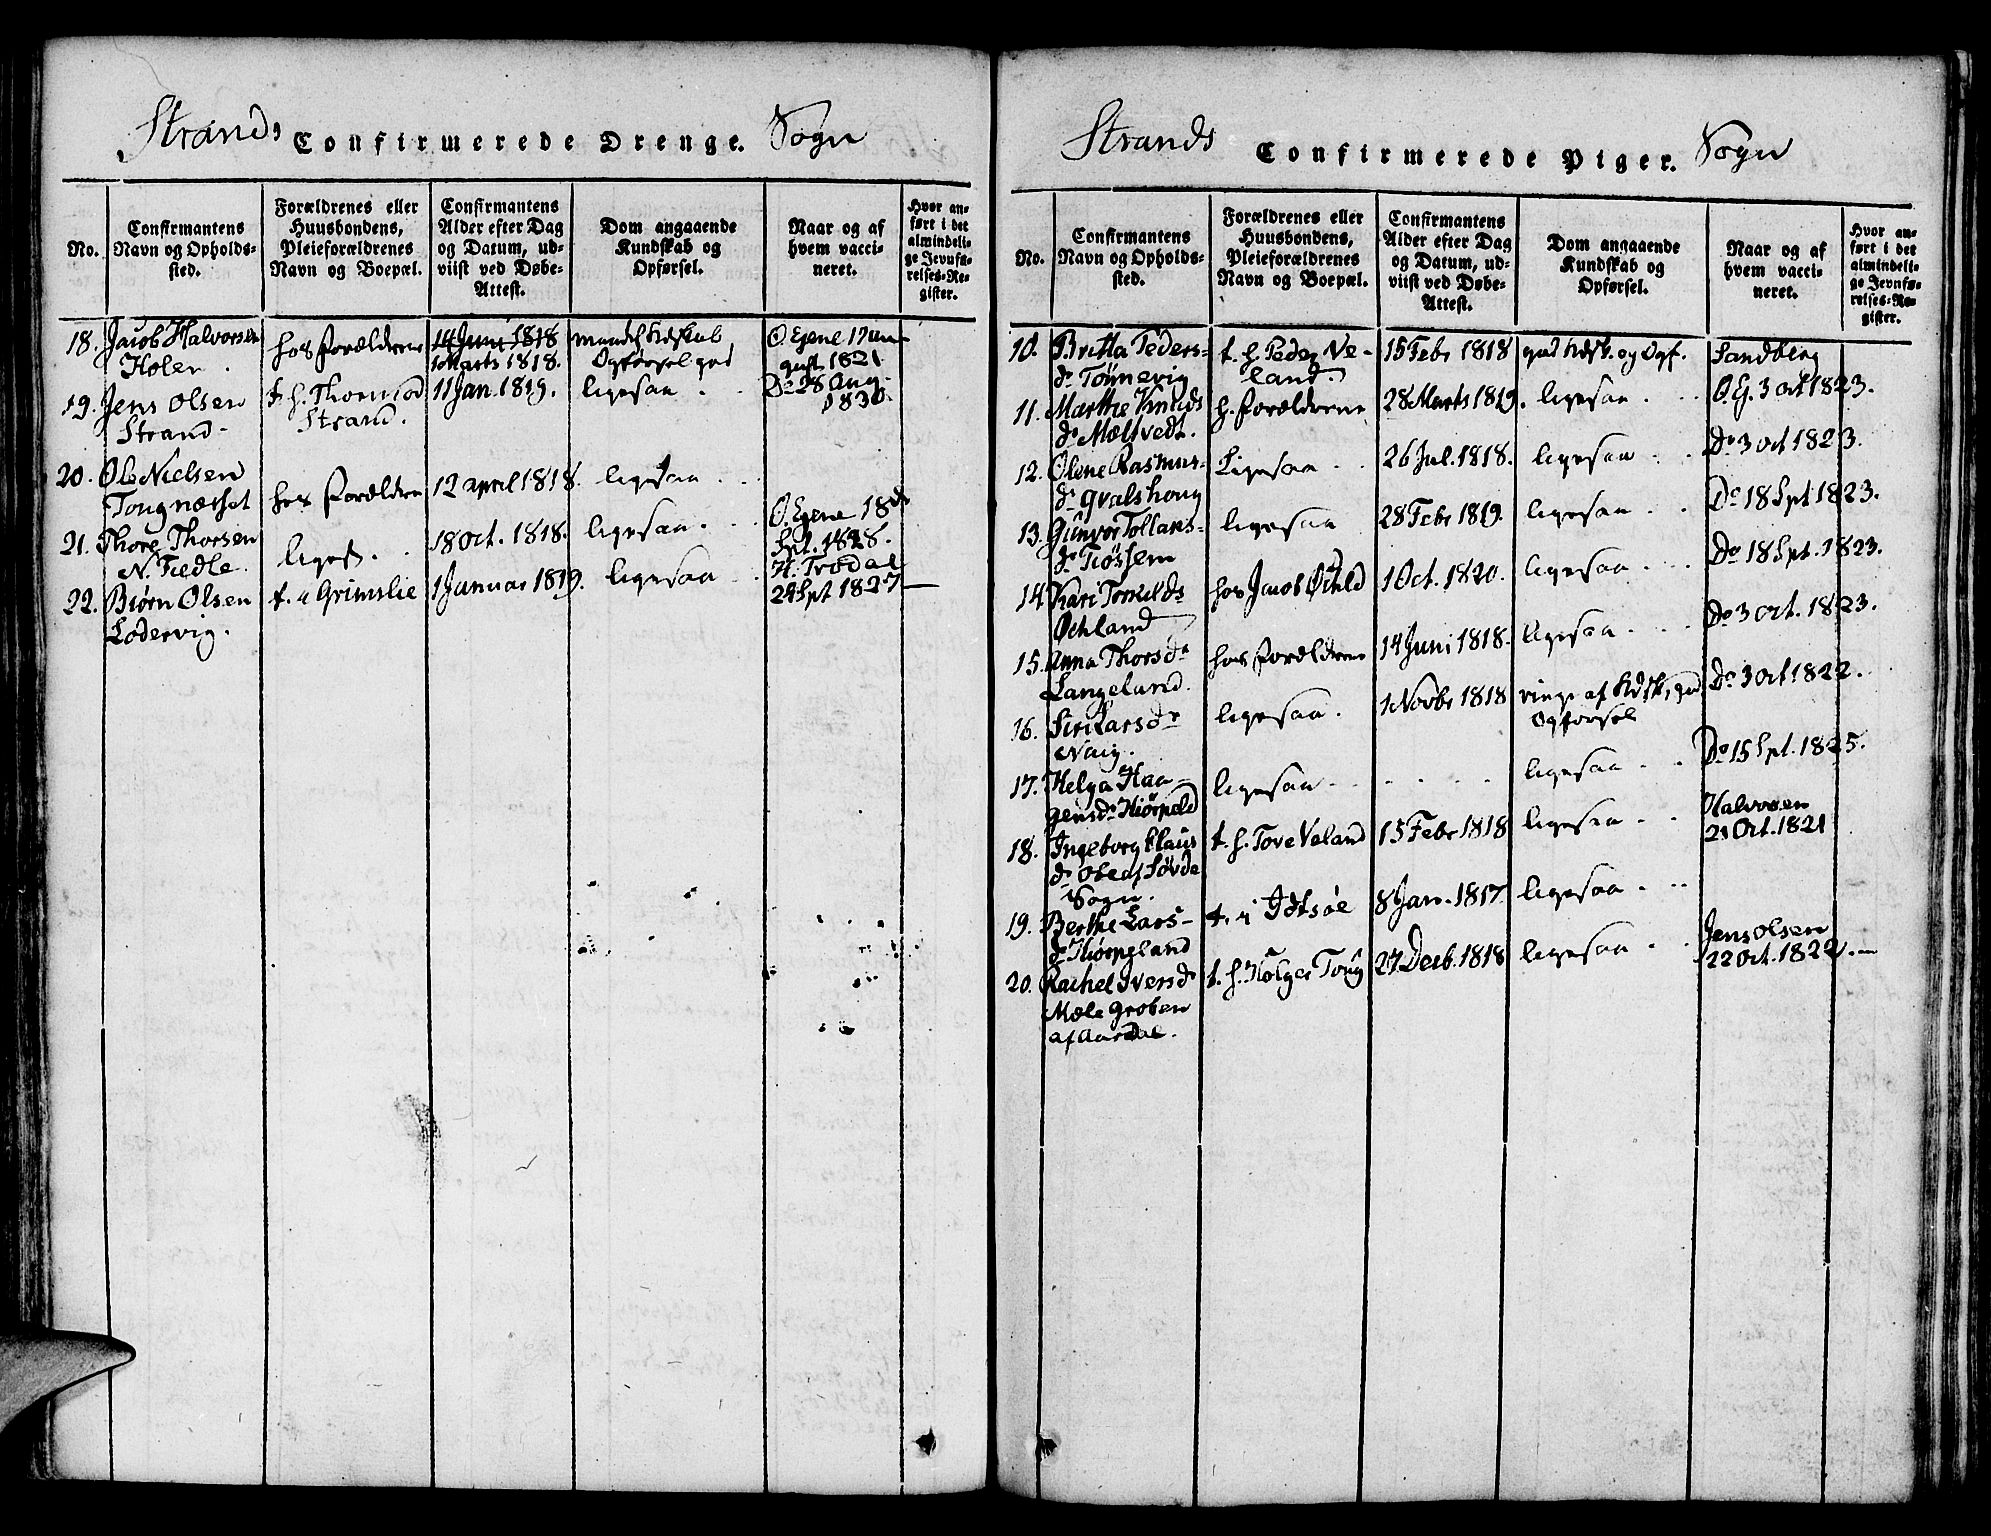 Strands Confirmerede Drenge. Sogn
No.
Confirmantens
Navn og Opholds-
sted.
Forældrenes eller
Huusbondens,
Pleieforældrenes
Navn og Boepæl.
Confirmantens
Alder efter Dag
og Datum, ud-
viist ved Døbe-
Attest.
Dom angaaende
Kundskab og
Opførsel.
Naar og af
hvem vacci-
neret.
Hvor an-
ført i det
almindeli-
ge Jevnfø-
relses-Re-
gister.
18. Jacob Halvorsen
Holen.
hos forældrene
14 Juni 1818
1 Marts 1818.
maadel. Kdskab
Opførsel god
O Egene 17 Au-
gust 1821
19. Jens Olsen
Strand
t. h. Thormod
Strand.
11 Jan. 1819.
ligesaa
Do 28 Aug.
1830.
20. Ole Nielsen
Tougnæsset
hos forældrene
12 april 1818.
ligesaa
21. Thore Thorsen
N. Tiedle.
liges.
18 Oct. 1818.
ligesaa
O. Egene 18de
Spt. 1828.
22. Biørn Olsen
Lodervig.
t. i Grimslie
1 Januar 1819.
ligesaa
H. Trodal
Spt 1827
Strands Confirmerede Piger. Sogn
No.
Confirmantens
Navn og Opholds-
sted.
Forældrenes eller
Huusbondens,
Pleieforældrenes
Navn og Boepæl.
Confirmantens
Alder efter Dag
og Datum, ud-
viist ved Døbe-
Attest.
Dom angaaende
Kundskab og
Opførsel.
Naar og af
hvem vacci-
neret.
Hvor an-
ført i det
almindeli-
ge Jevnfø-
relses-Re-
gister.
10. Britta Peders-
dr Tønnevig
t. h. Peder Ve-
land.
15 Febr 1818
god Kdsk. og Opf.
Sandberg
11. Marthe Knuds
dr Mæltvedt.
h. forældrene
28 Marts 1819.
ligesaa
O. E. 3 Oct 1823.
12. Olene Rasmus-
dr Qvalshoug
Ligesaa
26 Jul. 1818.
ligesaa
Do 3 oct 1823.
13. Gunvor Tollaks-
dr Tiøstem
ligesaa
28 Febr 1819.
ligesaa
Do 18 Spt 1823.
14. Kari Torkilds
Øchland
hos Jacob Øchld
1 Oct. 1820.
ligesaa
Do 18 Spt. 1823.
15. Anna Thorsdr
Langeland.
hos forældrene
14 Juni 1818.
ligesaa
Do 3 oct. 1823.
16. Siri Larsdr
Naig.
ligesaa.
1 Novbr 1818
ringe af Kdsk, god
Opførsel
Do 3 oct 1822.
17. Helga Haa-
gensdr Hiørpeld
ligesaa
ligesaa
Do 15 Spt. 1825.
18. Ingeborg Klaus
dr Søvde
Sogn.
t. h. Tore Veland
15 Febr 1818
ligesaa
Halvorsen
21 Oct. 1821
19. Berthe Lars-
dr Hiørpeland
t. i Idtsøe
8 Jan. 1817.
ligesaa
20. Rachel Iversdr
Mæle Groben
af Aardal.
t. h. Holger Toug
27 Decb. 1818
ligesaa
Jens Olsen
22 Oct. 1822.